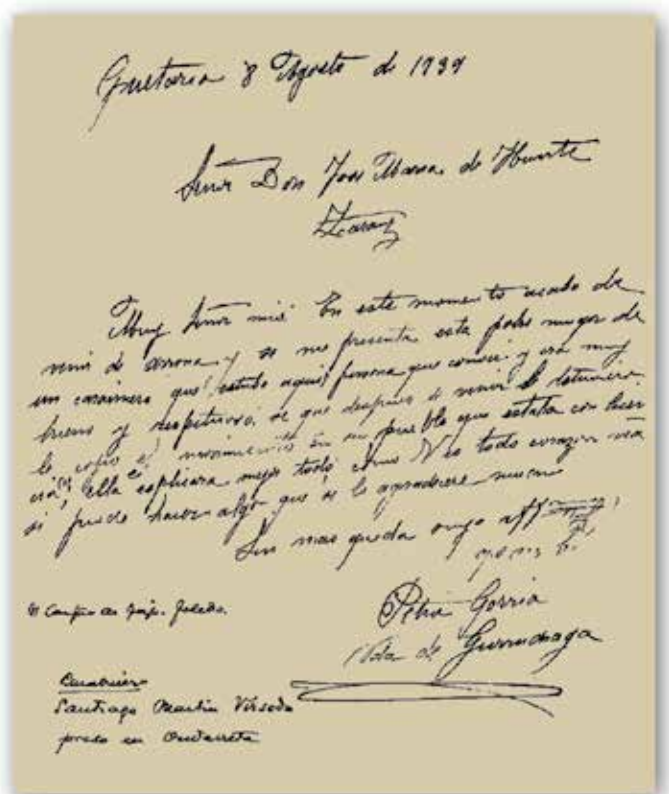 Guetaria 8 Agosto de 1939
Señor Don Jose Maria de Huarte
Muy Señor mio En este momento acabo de
venir de arrona y se me presenta esta pobre muger de
un carabinero que estubo aqui persona que conoci y era muy
bueno y respetuoso, se que despues de venir le
le cogio el movimiento en su pueblo que estaba con
ella esplicara mejor todo como V es todo corazon vea
si puede hacer algo que se le agradecere mucho
Sin mas queda suya
Petra Gorria
Vda de Gurruchaga
Carabinero
Santiago Martin Virseda
preso en Ondarreta